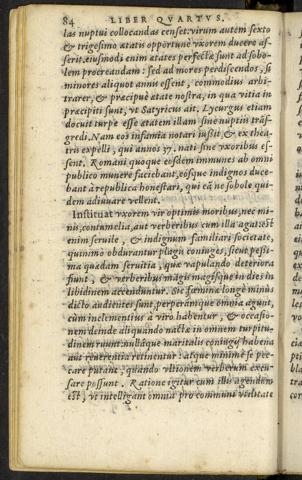 84 LIBER QVARTVS.
las nuptui collocandas censet: virum autem sexto
& trigesimo ætatis opportune vxorem ducere as-
serit. eiusmodi enim ætates perfectæ sunt ad sobo-
lem procreandam: sed ad mores perdiscendos, si
minores aliquot annis essent, commodius arbi-
trarer, & præcipue ætate nostra, in qua vitia in
præcipiti sunt, vt Satyricus ait. Lycurgus etiam
docuit turpe esse ætatem illam sine nuptiis trās-
gredi. Nam eos infamia notari iussit, & ex thea-
tris expelli, qui annos 37. nati sine vxoribus es-
sent. Romani quoque eosdem immunes ab omni
publico munere faciebant, eosque indignos duce-
bant à republica honestari, qui eā ne sobole qui-
dem adiuuare vellent.
Instituat vxorem vir optimis moribus, nec mi-
nis, contumelia, aut verberibus cum illa agat: est
enim seruile, & indignum familiari societate,
quinimo obdurantur plagis coniuges, sicut pessi-
ma quædam seruitia, quæ vapulando deteriora
fiunt, & verberibus magis magisque in dies in
libidinem accenduntur. Sic fœminæ longè minùs
dicto audientes sunt, perperámque omnia agunt,
cùm inclementius à viro habentur, & occasio-
nem deinde aliquando nactæ in omnem turpitu-
dinem ruunt: nullaque maritalis coniugij habena
aut reuerentia retinentur: atque minimè se pec-
care putant, quando vltionem verberum excu-
sare possunt. Ratione igitur cum illis agendum
est, vt intelligant omnia pro communi vtilitate